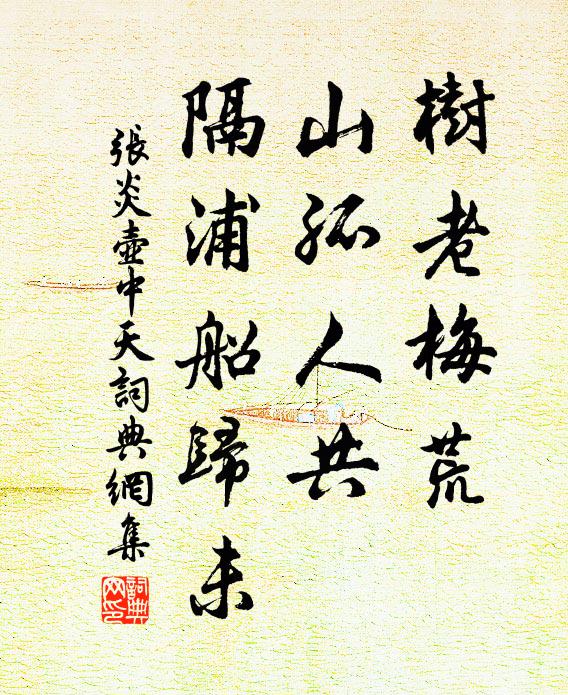 樹老梅荒
山孤人共
隔浦船歸未
張炎壺中天詞典網集
詞典网印